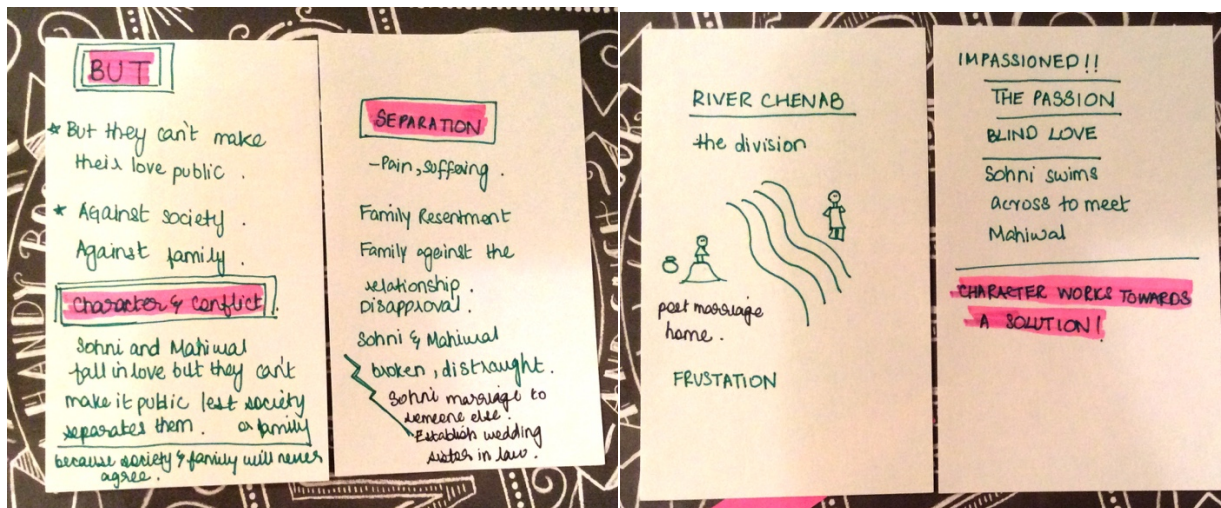 BUT
* But they can't make
their love public.
* Against society.
Against family.
Character & Conflict.
Sohni and Mahiwal
fall in love but they can't
make it public lest society
separates them. or family
because society & family will never
agree.
SEPARATION
- Pain, suffering.
Family Resentment
Family against the
relationship.
Disapproval.
Sohni & Mahiwal
broken, distraught.
Sohni marriage to
someone else.
Establish wedding
sister in law.
RIVER CHENAB
the division
post marriage
home.
FRUSTATION
IMPASSIONED!!
THE PASSION
BLIND LOVE
Sohni swims
across to meet
Mahiwal
CHARACTER WORKS TOWARDS
A SOLUTION!